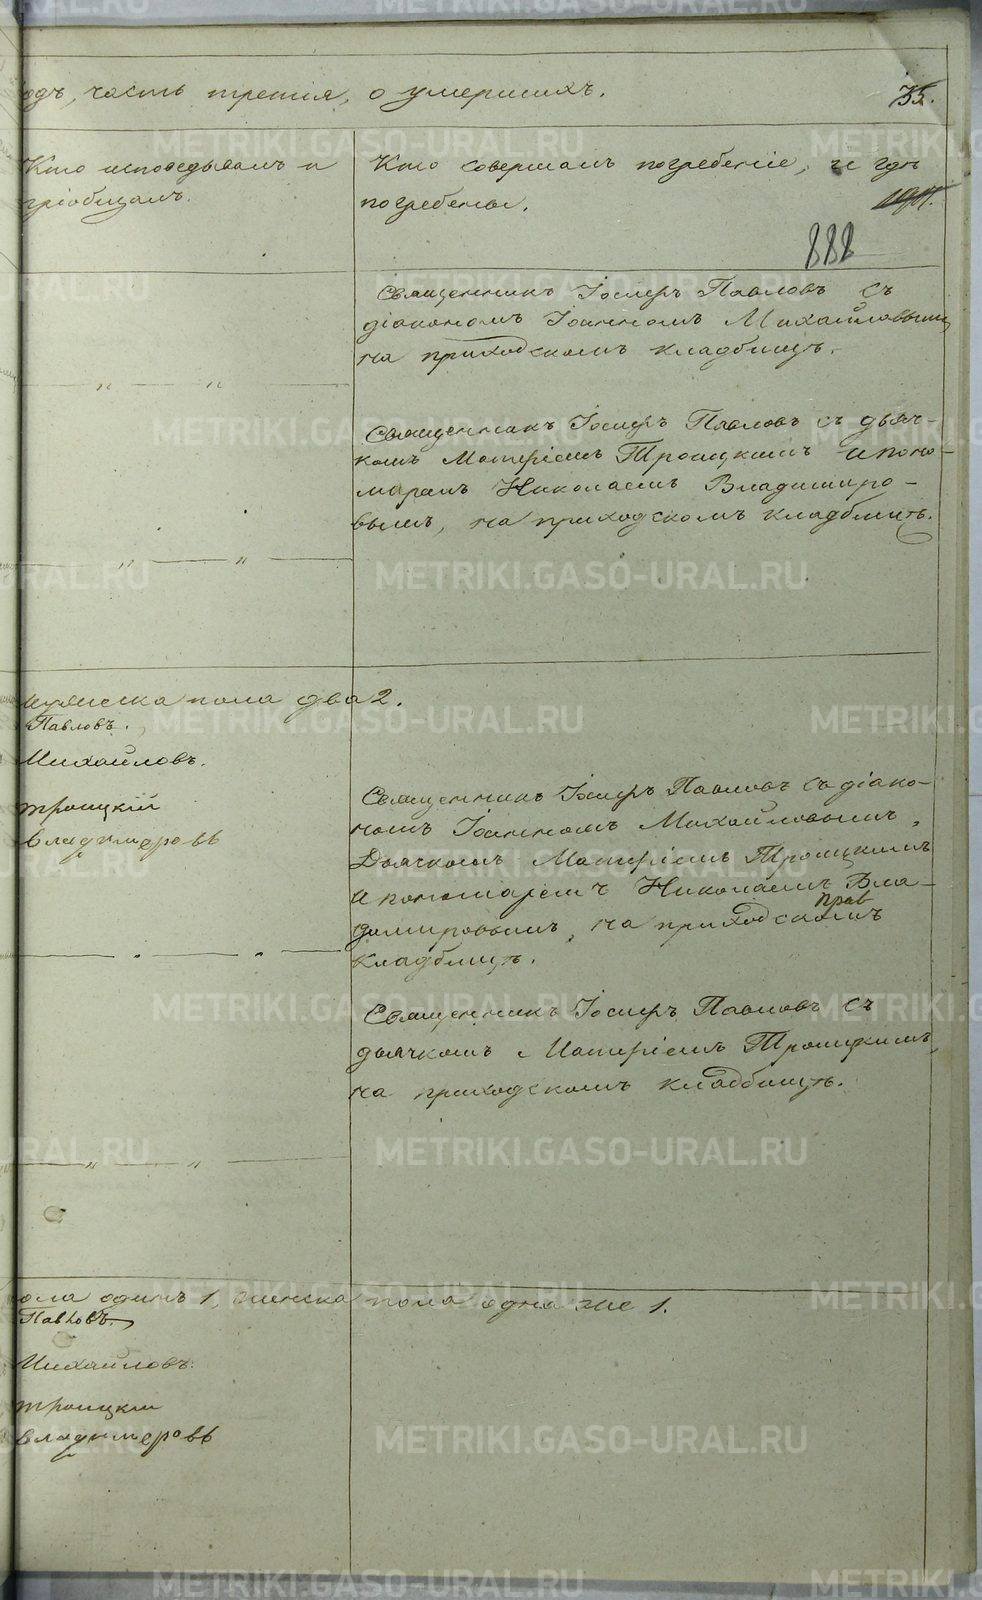 одъ, часть третія, о умершихъ.
Кто исповедывалъ и
пріобщалъ.
Кто совершалъ погребеніе, и гдѣ
погребены.
888
Священникъ Іосифъ Павловъ съ
діакономъ Іоанномъ Михайловымъ
на приходскомъ кладбищѣ.
Священникъ Іосифъ Павловъ съ дьяч-
комъ Матѳіемъ Троицкимъ и поно-
маремъ Николаемъ Владимиро-
вымъ, на приходскомъ кладбищѣ.
мужеска пола два 2.
Павловъ.
Михайловъ.
Троицкій
Владимеровъ
Священникъ Іосифъ Павловъ съ діако-
номъ Іоанномъ Михайловымъ,
Дьячкомъ Матѳіемъ Троицкимъ
и пономаремъ Николаемъ Вла-
димировымъ, на приходскомъ
кладбищѣ.
Священникъ Іосифъ Павловъ съ
дьячкомъ Матѳіемъ Троицкимъ,
на приходскомъ кладбищѣ.
пола одинъ 1, женска пола одна же 1.
Павловъ.
Михайловъ.
Троицкій
Владимеровъ
METRIKI.GASO-URAL.RU